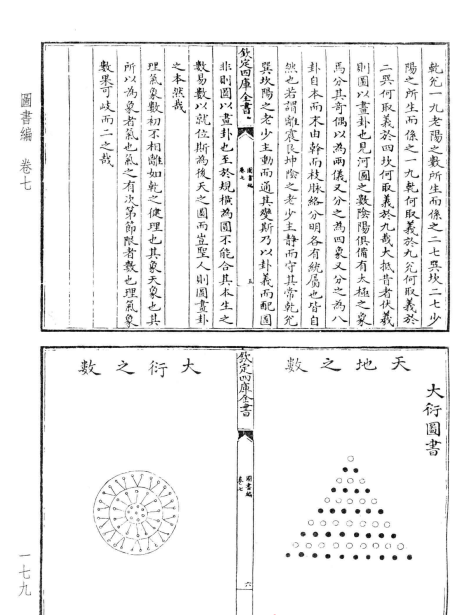 乾兊一九老陽之數所生而係之二七巽坎二七少
陽之所生而係之一九乾何取義於九兊何取義於
二巽何取義於四坎何取義於九哉大抵昔者伏羲
則圖以畫卦也見河圖之數陰陽俱備有太極之象
焉分其奇偶以為兩儀又分之為四象又分之為八
卦自本而末由幹而枝脉絡分明各有統屬也皆自
然也若謂離震艮坤陰之老少主靜而守其常乾兊
巽坎陽之老少主動而通其變斯乃以卦義而配圖
非則圖以畫卦也至於規橫為圓不能合其本生之
數易數以就位斯為後天之圖而豈聖人則圖畫卦
之本然哉
理氣象數初不相離如乾之健理也其象天象也其
所以為象者氣也氣之有次第節限者數也理氣象
數果可歧而二之哉
欽定四庫全書
圖書編
卷七
五
圖書編 卷七
大衍圖書
天地之數
欽定四庫全書
圖書編
卷七
六
大衍之數
一七九